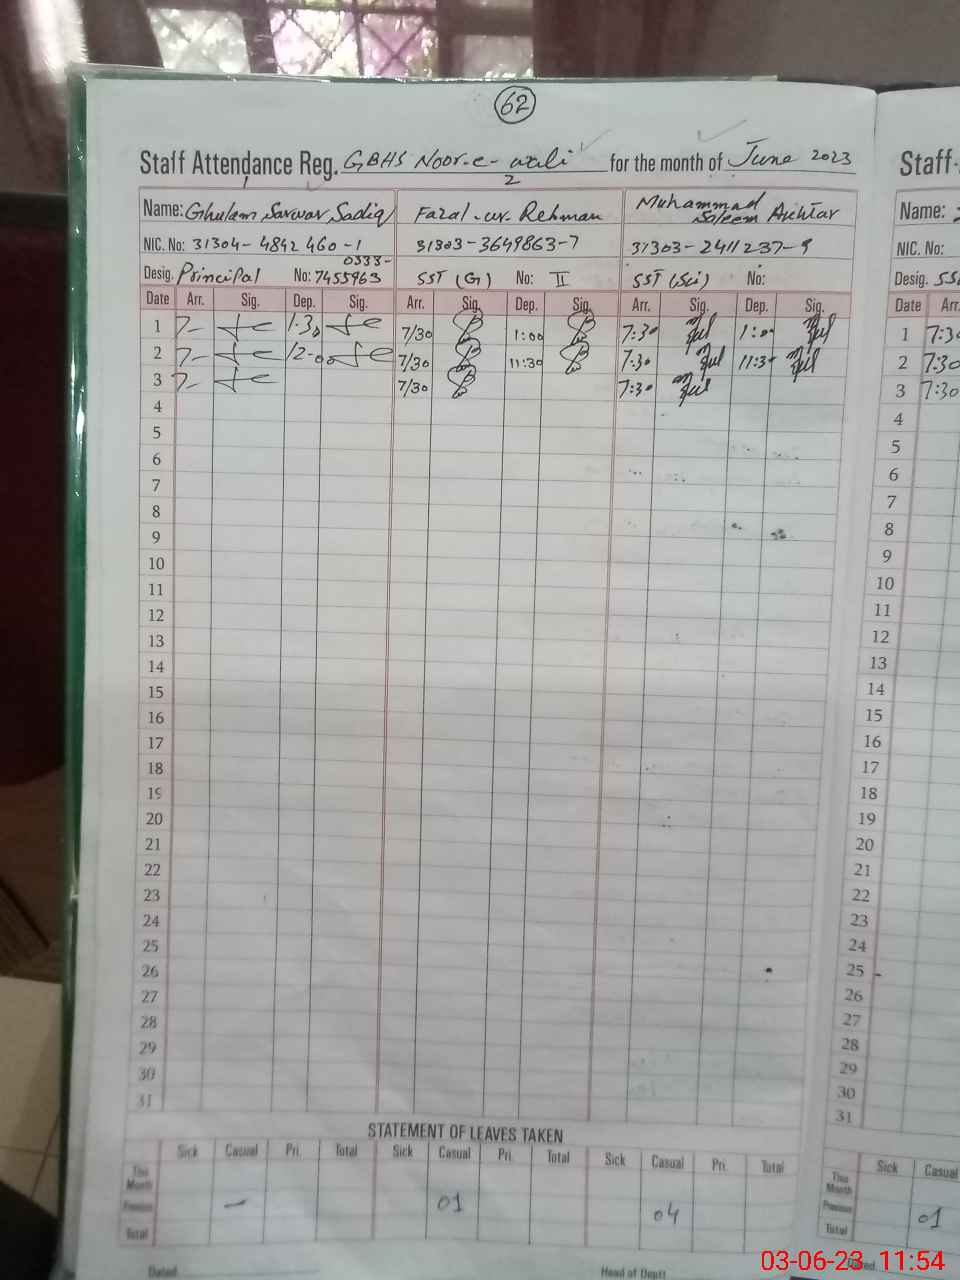 62
Staff Attendance Reg. GBHS Noor-e-wali for the month of June 2023
1 2
Name: Ghulam Sarwar Sadiq Fazal-ur-Rehman Muhammad Saleem Akhtar
NIC. No: 31304-4842460-1 31303-3649863-7 31303-2411237-9
Desig. Principal No: 0333-7455963 SST (G) No: II SST (Sci) No:
Date Arr. Sig. Dep. Sig. Arr. Sig. Dep. Sig. Arr. Sig. Dep. Sig.
1 7- 1:30 7/30 1:00 7:30 1:00
2 7- 12-00 7/30 11:30 7:30 11:30
3 7- 7/30 7:30
4
5
6
7
8
9
10
11
12
13
14
15
16
17
18
19
20
21
22
23
24
25
26
27
28
29
30
31
STATEMENT OF LEAVES TAKEN
Sick Casual Pri. Total Sick Casual Pri. Total Sick Casual Pri. Total
This Month
Previous - 01 04
Total
Dated Head of Deptt
Staff
Name:
NIC. No:
Desig. SS
Date Arr.
1 7:30
2 7:30
3 7:30
4
5
6
7
8
9
10
11
12
13
14
15
16
17
18
19
20
21
22
23
24
25
26
27
28
29
30
31
Sick Casual
This Month
Previous 01
Total
Dated
03-06-23 11:54